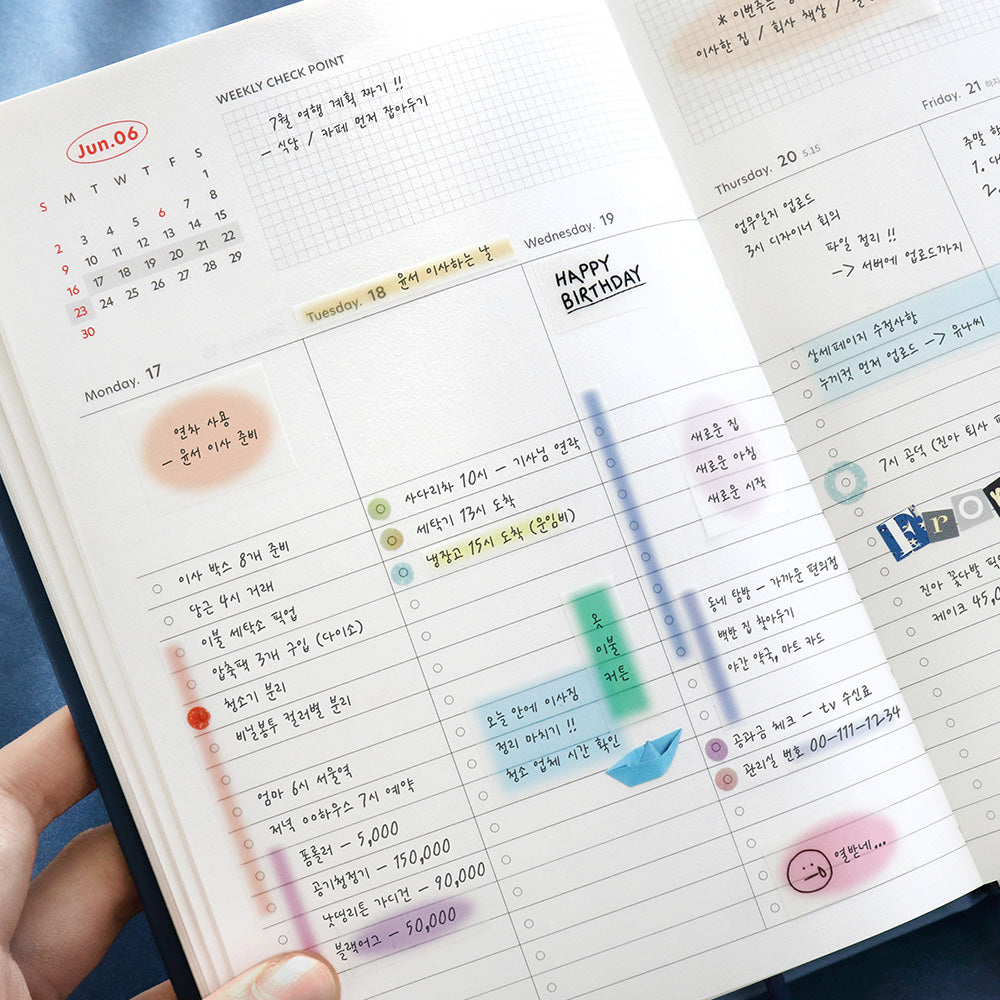 WEEKLY CHECK POINT
7월 여행 계획 짜기 !!
– 식당 / 카페 먼저 잡아두기
Jun.06
S M T W T F S
1
2 3 4 5 6 7 8
9 10 11 12 13 14 15
16 17 18 19 20 21 22
23 24 25 26 27 28 29
30
Monday. 17
연차 사용
– 윤서 이사 준비
이사 박스 8개 준비
당근 4시 거래
이불 세탁소 픽업
압축팩 3개 구입 (다이소)
청소기 분리
비닐봉투 컬러별 분리
엄마 6시 서울역
저녁 00하우스 7시 예약
폼롤러 – 5,000
공기청정기 – 150,000
낫띵리튼 가디건 – 90,000
블랙어그 – 50,000
Tuesday. 18 윤서 이사하는 날
사다리차 10시 – 기사님 연락
세탁기 13시 도착
냉장고 15시 도착 (운임비)
옷
이불
커튼
오늘 안에 이사짐
정리 마치기 !!
청소 업체 시간 확인
Wednesday. 19
HAPPY
BIRTHDAY
새로운 집
새로운 아침
새로운 시작
동네 탐방 – 가까운 편의점
백반 집 찾아두기
야간 약국, 마트 카드
공과금 체크 – tv 수신료
관리실 번호 00-111-12-34
열받네...
* 이번주는
이사한 집 / 회사 책상 /
Thursday. 20 5.15
업무일지 업로드
3시 디자이너 회의
파일 정리 !!
–> 서버에 업로드까지
상세페이지 수정사항
누끼컷 먼저 업로드 –> 유나씨
7시 공덕 (진아 퇴사
Fro
진아 꽃다발
케이크 45,0
Friday. 21
주말
1.
2.